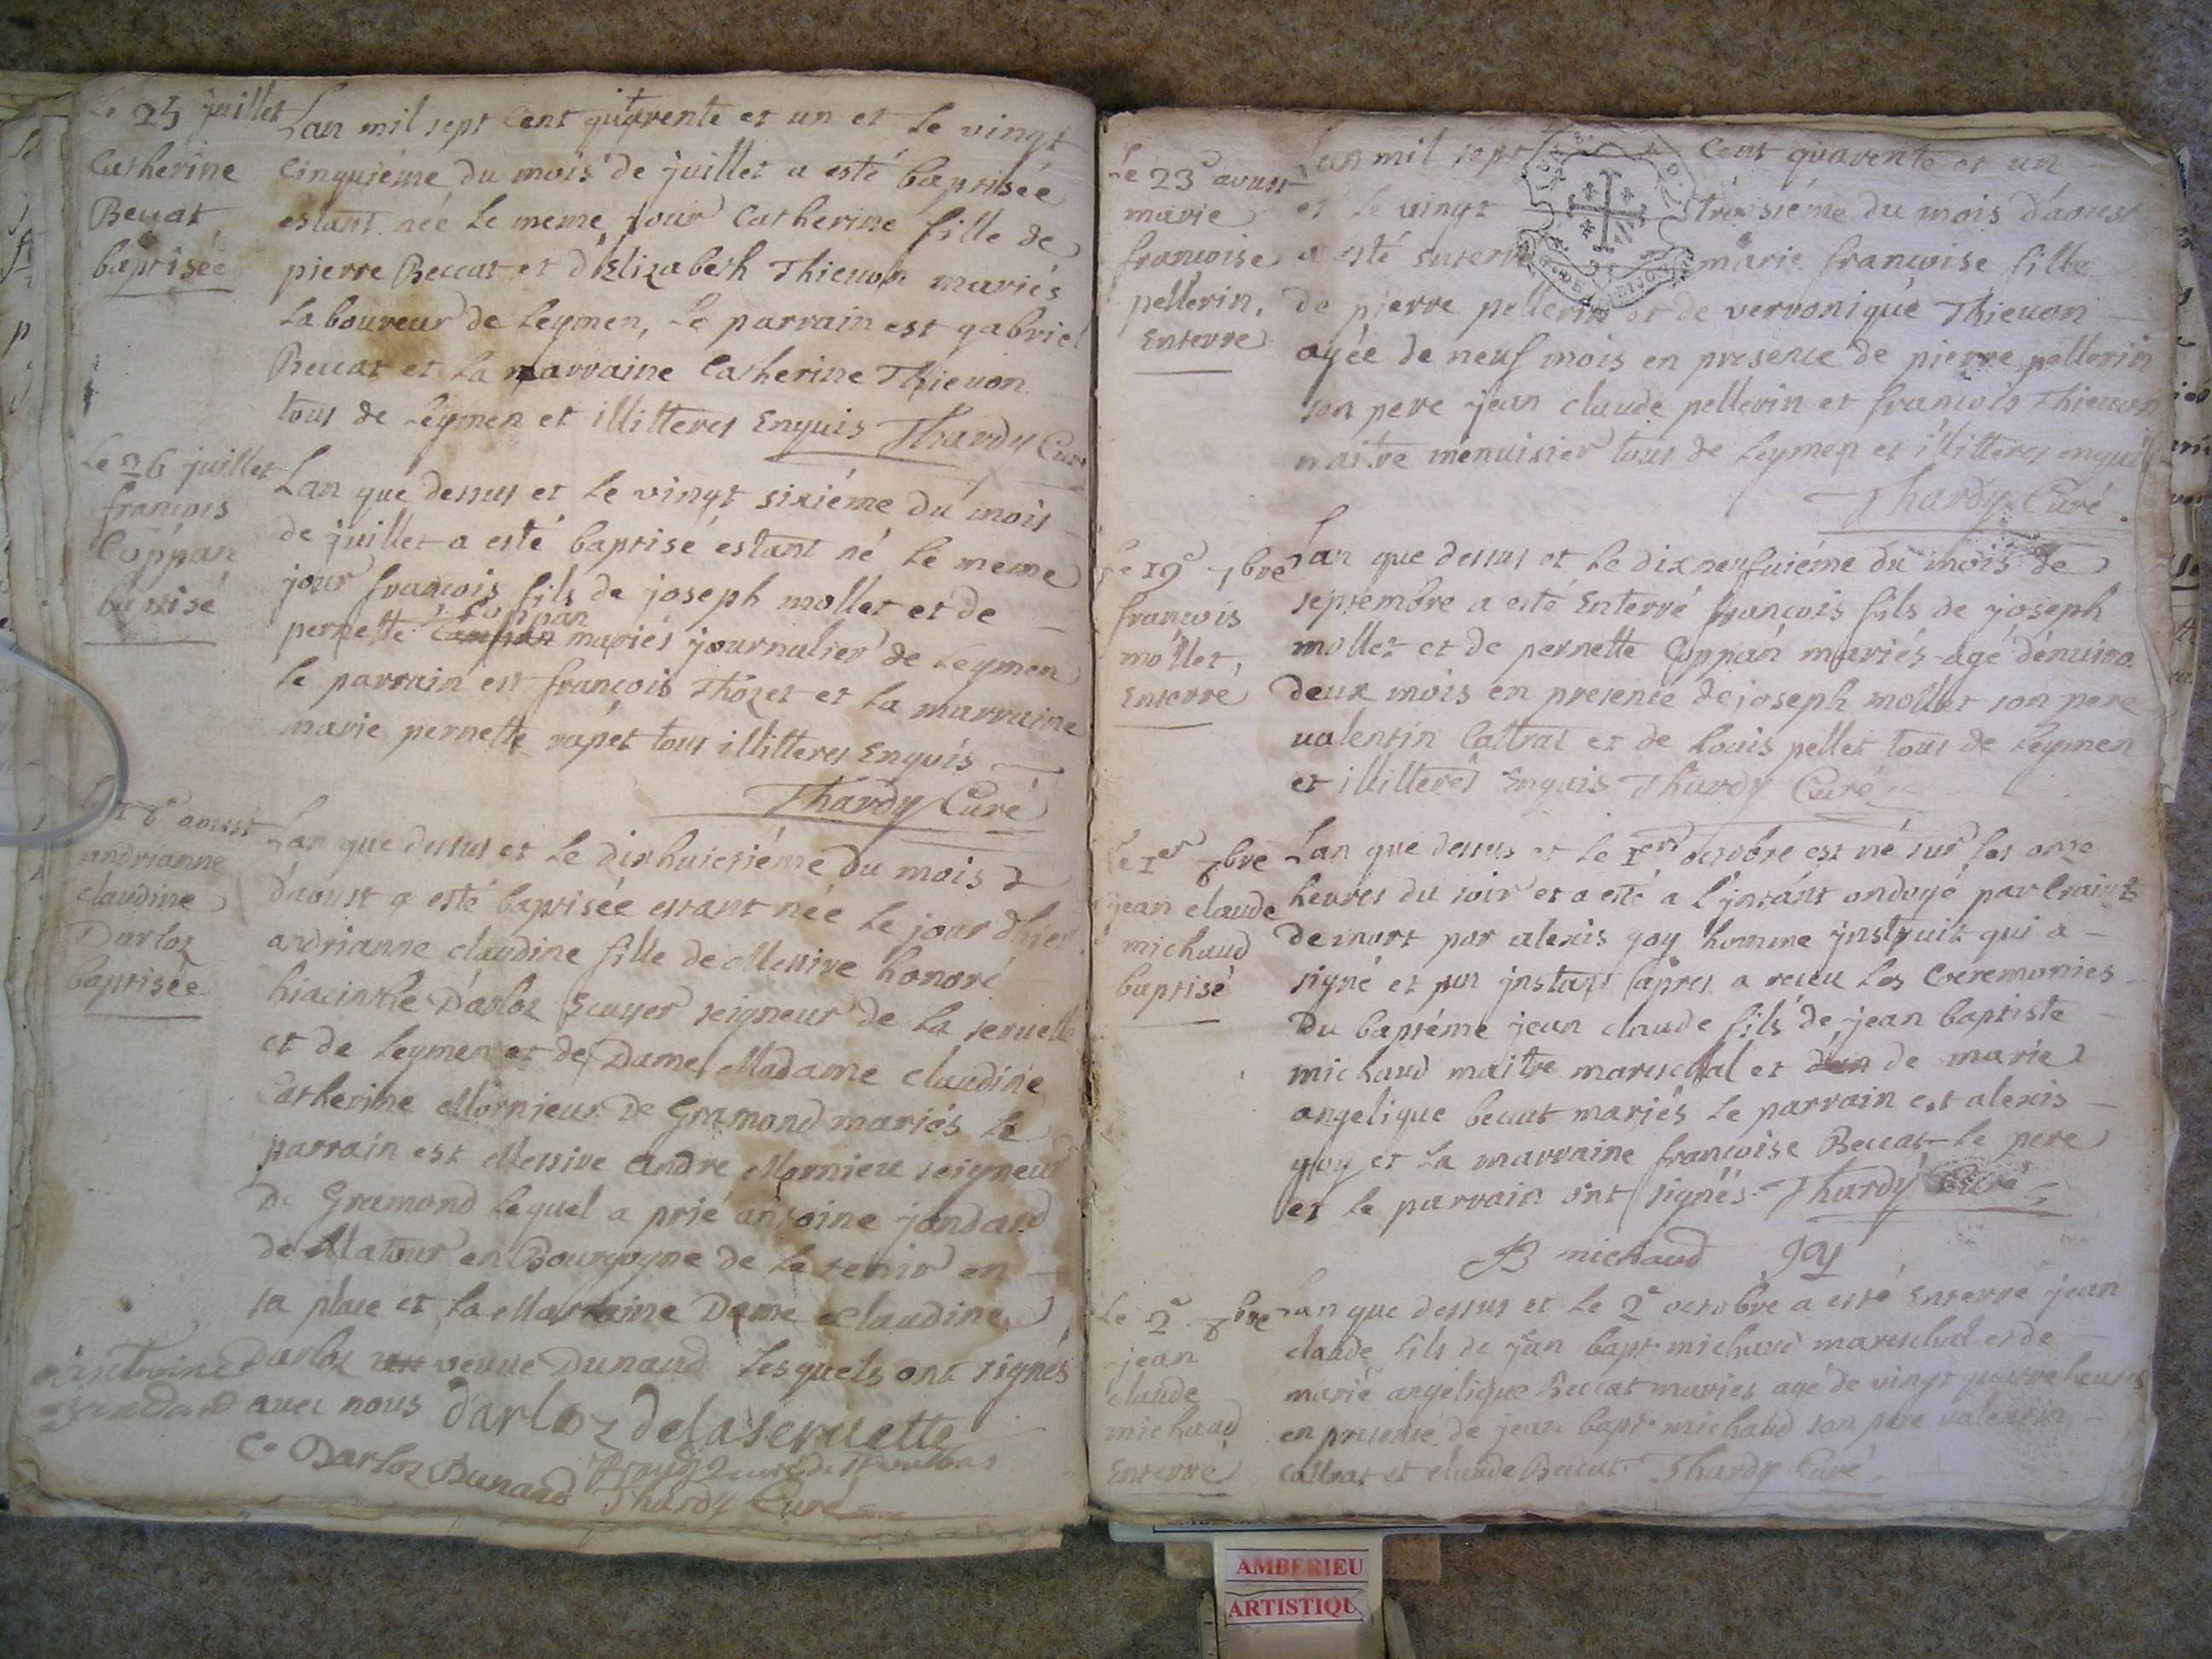 Le 25 juillet
Catherine
Beccat
baptisée
Lan mil sept Cent quarente et un et Le vingt
Cinquiéme du mois de juillet a esté baptisée
estant née Le meme jour Catherine fille de
pierre Beccat et d'Elizabeth Thievon mariés
Laboureur de Leymen, Le parrain est gabriel
Beccat et La marraine Catherine Thievon
tous de Leymen et illitteres Enquis Thardy Curé
Le 26 juillet
francois
Coppan
baptisé
Lan que dessus et Le vingt sixiéme du mois
de juillet a esté baptisé estant né Le meme
jour francois fils de joseph mollet et de
pernette Coppan mariés journalier de Leymen
Le parrain est françois Thozet et La marraine
marie pernette rapet tous illitteres Enquis
Thardy Curé
Le 18e aoust
andrianne
claudine
Darloz
baptisée
Lan que dessus et Le dixhuictiéme du mois
d'aoust a esté baptisée estant née Le jour d'hier
andrianne claudine fille de Messire honoré
hiacinthe Darloz Ecuyer seigneur de La seruette
et de Leymen et de Dame Madame claudine
Catherine Mornieux de Gramond mariés Le
parrain est Messire andre Mornieu seigneur
De Gramond Lequel a prié antoine jondard
de Matour en Bourgogne de Le tenir en
sa place et La Marraine Dame claudine
Darloz veuve Dunand Lesquels ont signés
avec nous Darloz delaseruette
antoine
jondard
C. Darloz Dunand
Thardy Curé
Le 23e aoust
marie
francoise
pellerin,
Enterre
Lan mil sept Cent quarente et un
et Le vingt troisiéme du mois d'aoust
a esté Enterré marie francoise fille
de pierre pellerin et de verronique Thievon
agée de neuf mois en presence de pierre pellerin
son pere jean claude pellerin et francois Thievon
maitre menuisier tous de Leymen et illitteres enquis
Thardy Curé
Le 19e 7bre
francois
mollet,
Enterré
Lan que dessus et Le dixneufuiéme du mois de
septembre a esté Enterré francois fils de joseph
mollet et de pernette Coppan mariés agé d'enuiron
deux mois en presence de joseph mollet son pere
valentin Cattrat et de Louis pellet tous de Leymen
et illitteres Enquis Thardy Curé
Le 1er 8bre
jean claude
michaud
baptisé
Lan que dessus et Le 1er octobre est né sur Les onze
heures du soir et a esté a L'jnstant ondoyé par Crainte
de mort par alexis goy homme jnstruit qui a
signé et un jnstant apres a receu Les Ceremonies
Du baptéme jean claude fils de jean baptiste
michaud maitre mareschal et de marie
angelique beccat mariés Le parrain est alexis
goy et La marraine francoise Beccat Le pere
et Le parrain ont signés Thardy Curé
JB michaud goy
Le 2e 8bre
jean
claude
michaud
Enterré
Lan que dessus et Le 2e octobre a esté Enterré jean
claude fils de jean bapt. michaud mareschal et de
marie angelique Beccat mariés agé de vingt quatre heures
en presence de jean bapt. michaud son pere valentin
Cattrat et claude Beccat. Thardy Curé
AMBERIEU
ARTISTIQU